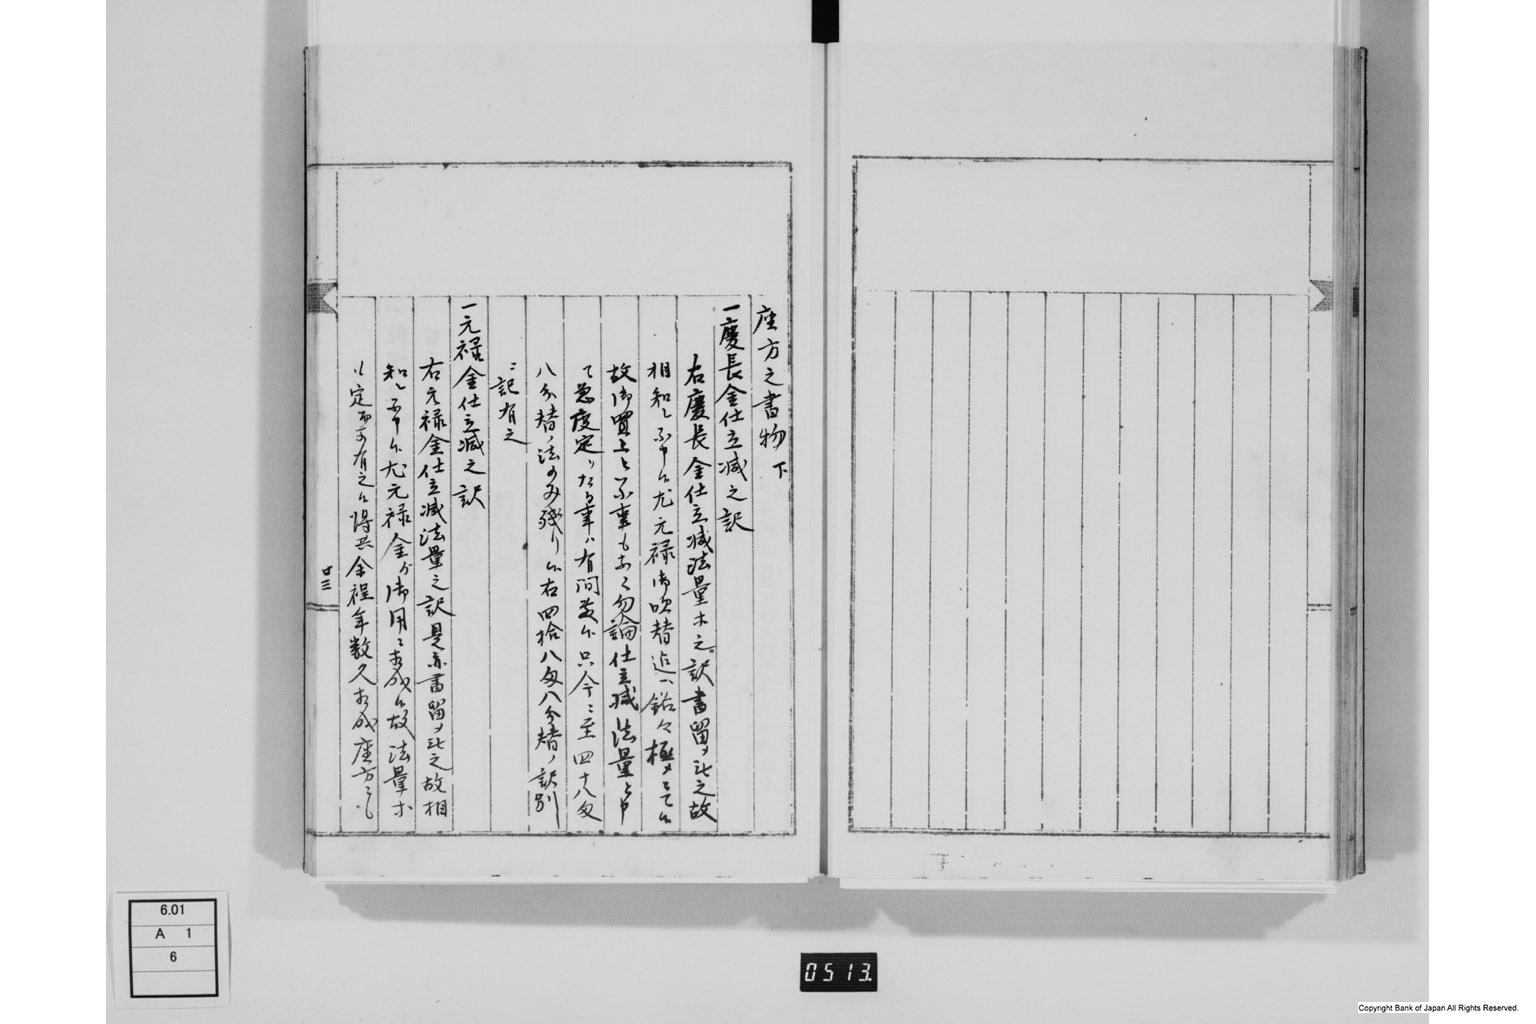 座方之書物 下
一慶長金仕立減之訳
右慶長金仕立減法量ホ之訳書留メ無之故
相知レ不申候尤元禄御吹替迄ハ銘々極メニて候
故御買上と申事もなく勿論仕立減法量と申
て急度定リたる事ハ有間敷候只今ニ至四十八匁
八分替ノ法のみ残リ候右四拾八匁八分替ノ訳別
ニ記有之
一元禄金仕立減之訳
右元禄金仕立減法量之訳是亦書留メ無之故相
知レ不申候尤元禄金ゟ御用ニ相成候故法量ホ
定而可有之候得共余程年数久相成座方
廿三
6.01
A 1
6
0513.
Copyright Bank of Japan All Rights Reserved.